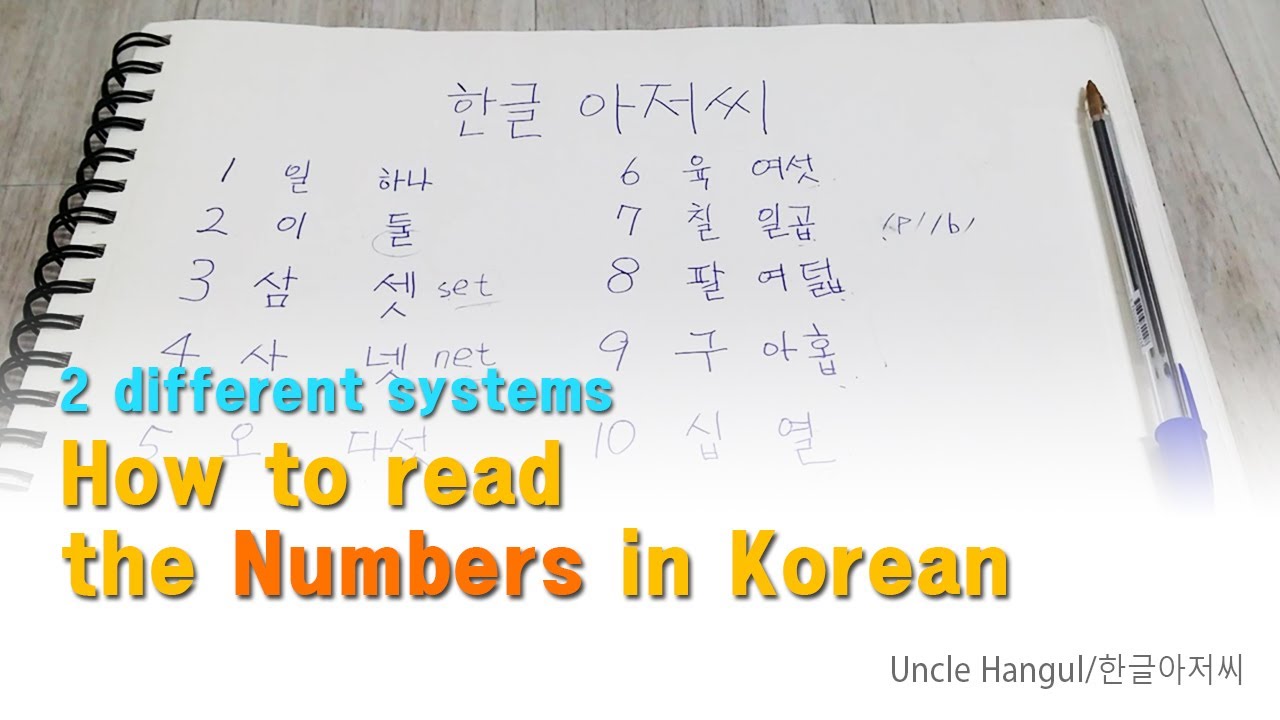 한글 아저씨
1 일 하나
2 이 둘
3 삼 셋 set
4 사 넷 net
5 오 다섯
6 육 여섯
7 칠 일곱 /p/ /b/
8 팔 여덟
9 구 아홉
10 십 열
2 different systems
How to read
the Numbers in Korean
Uncle Hangul/한글아저씨